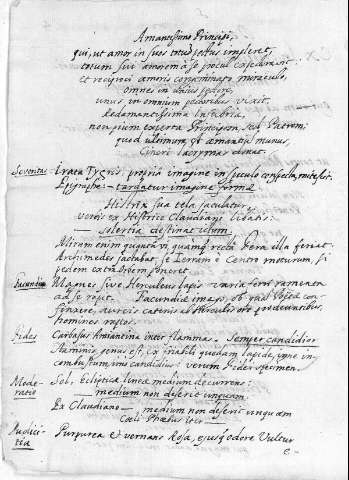 Amantissimo Principi,
qui, ut amor in suos totus pectus impleret,
totum sui amorem à se procul
et reciproci amoris consummato miraculo,
omnes in unius pectore,
unus in omnium pectoribus vixit,
Redamantissima Insubria,
non pium experta Principem, sed Patrem,
quod ultimum est amantis munus,
Cineri lacrymas donat.
Seventas Irata Tygris propria imagine in speculo conspecta, mitescit.
Epigraphe — targatur imagine forma
Histrix sua tela jaculatur,
versus ex Histrice Claudiani
solertia destinat ictum.
Mirum enim quanta vi quamque recta ferat.
Archimedes jactabat, se Terram è Centro moturum, si
pedem extra Orbem poneret.
Facundia Magnes sive Herculeus lapis varia ferri ramenta
ad se rapit. Facundiae imago, ob
finxere, aureis catenis ab Herculis ore prodeuntibus,
homines raptos.
Fides Carbasus Amiantina inter flammas. Semper candidior
staminis genus est, ex friabili quodam lapide, igne in
combustum, imò candidius: verum Fidei specimen.
Mode- Sol, Eclipticae lineâ medium decurrens:
ratio medium non deserit unquam
Ex Claudiano — medium non deserit unquam
Coeli Phoebus iter —
Pudici- Purpurea & vernans Rosa, ejusque odore Vultur
tia